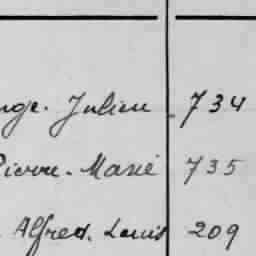 nge. Julien 734
Pierre-Marie 735
Alfred. Louis 209